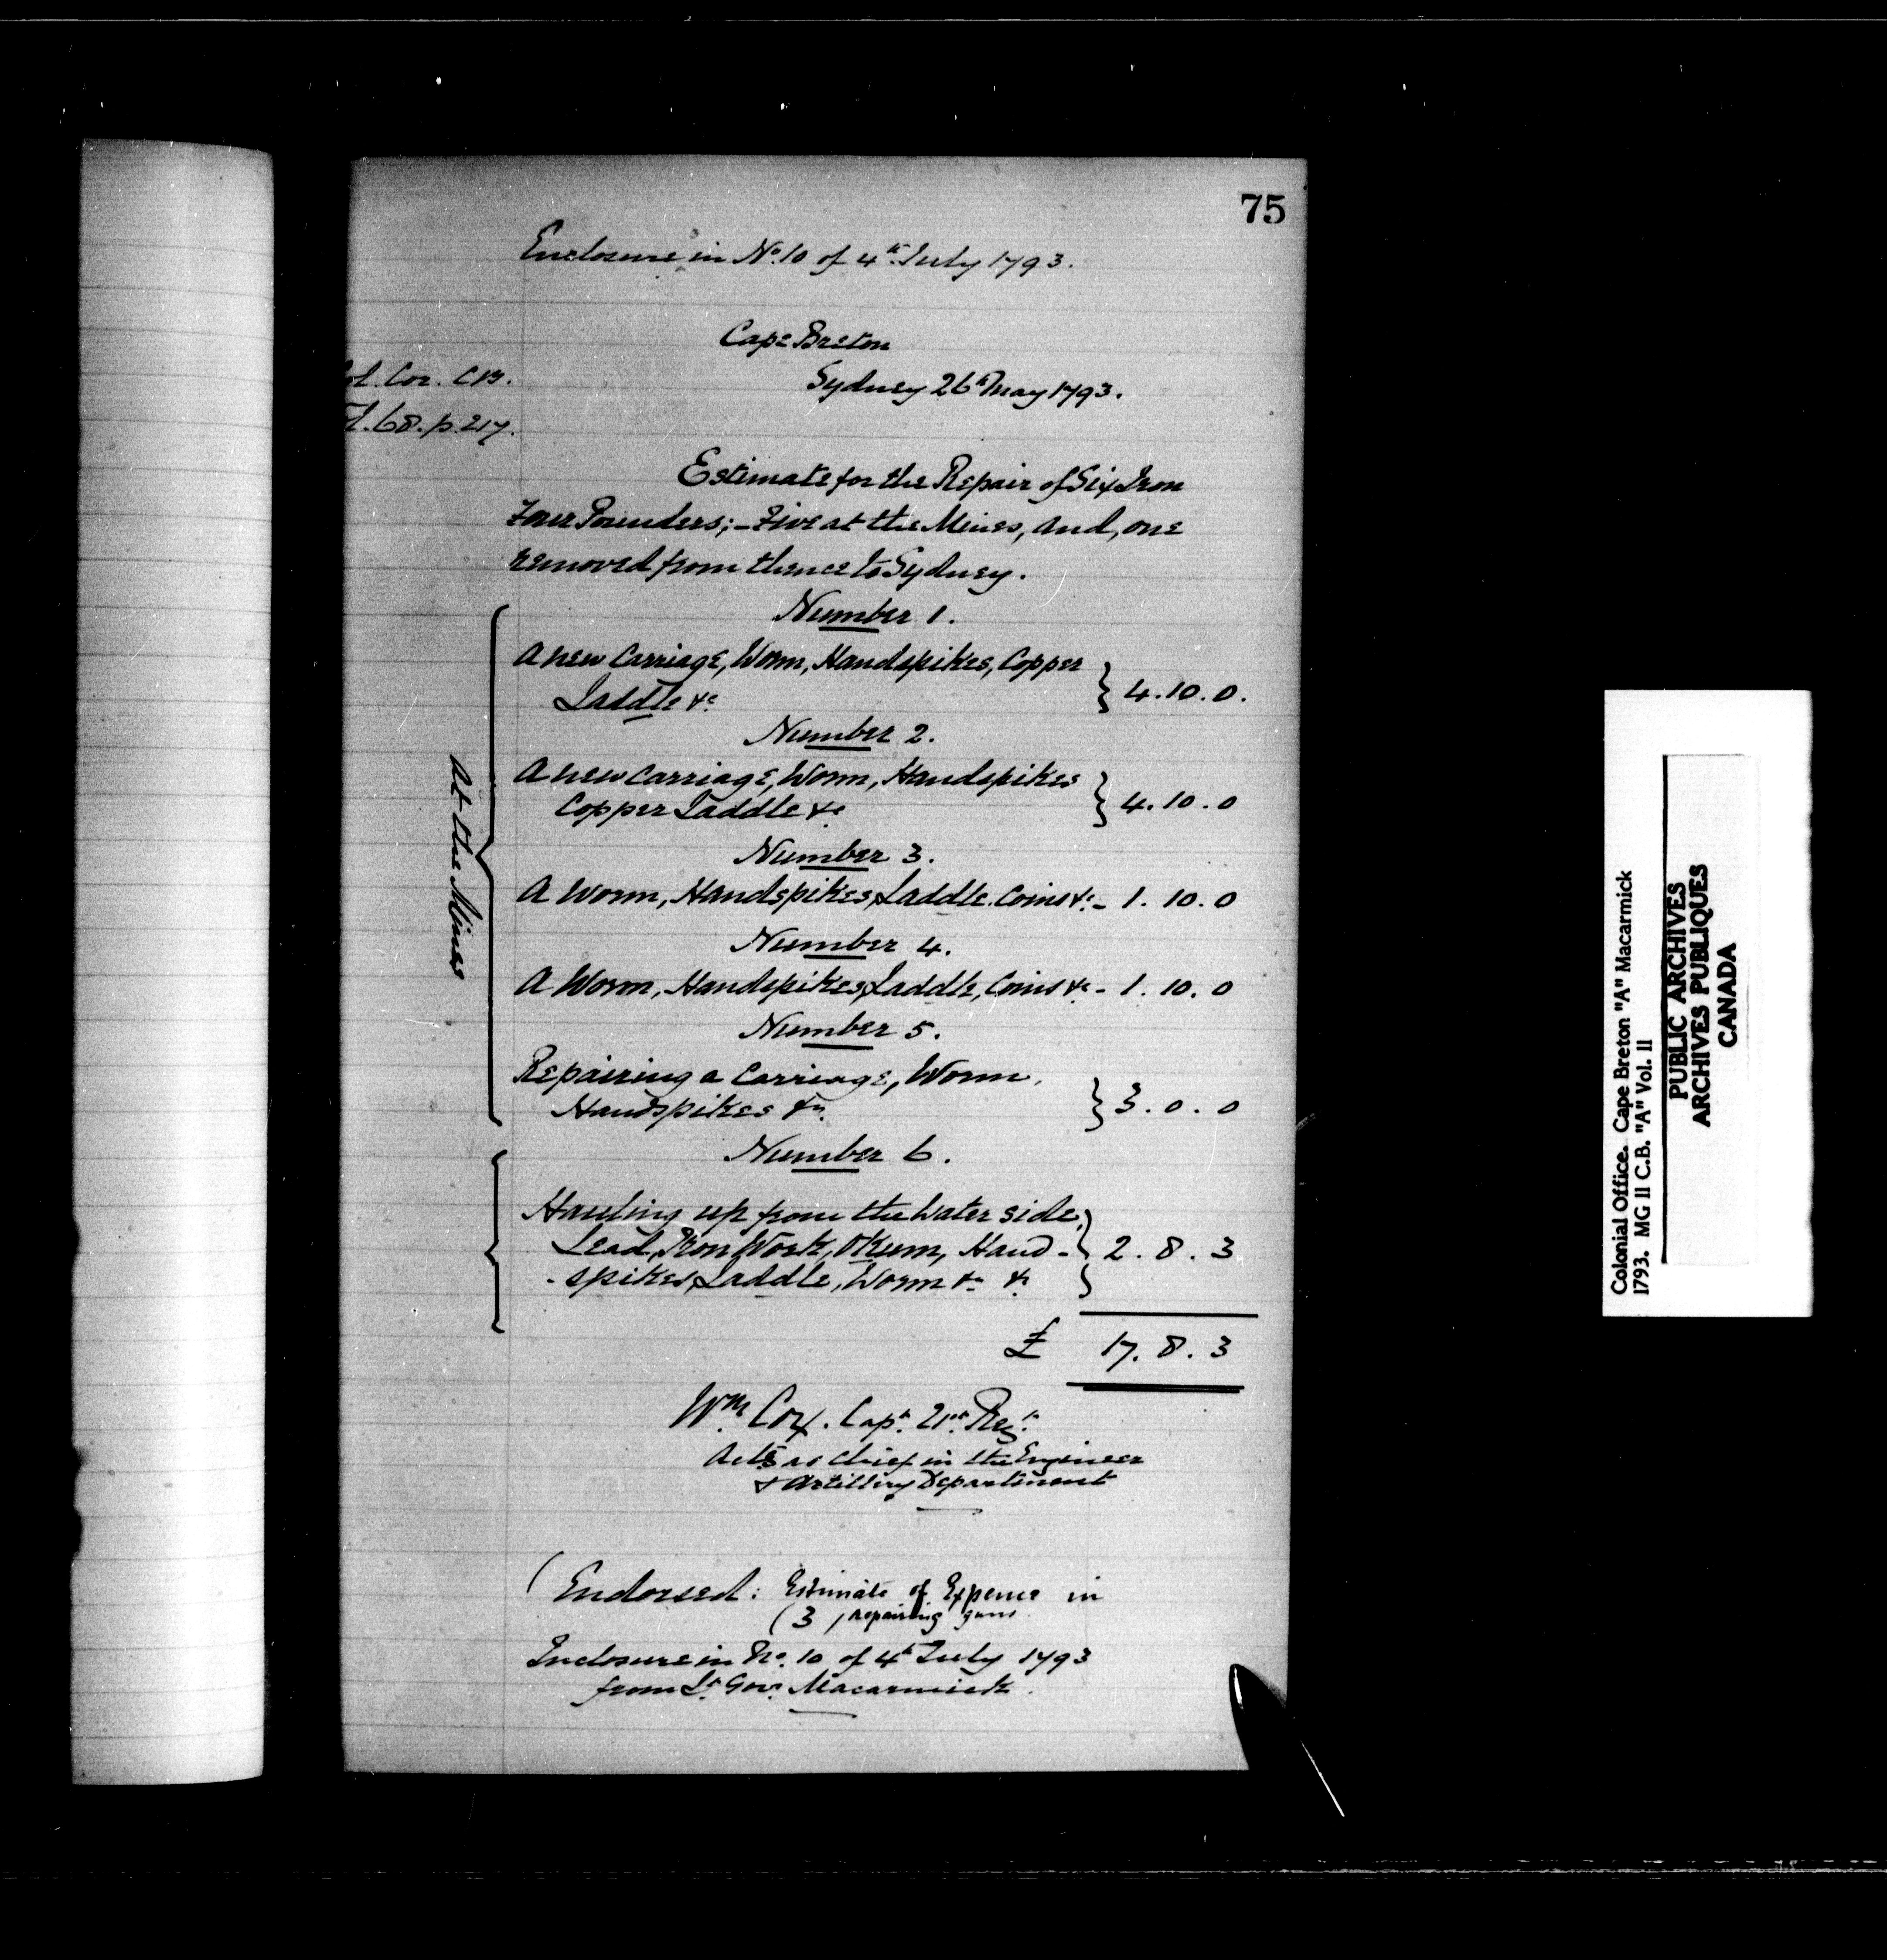 75
Enclosure in No. 10 of 4th July 1793.
Cape Breton
Sydney 26th May 1793.
Col. Cor. C.B.
Vol. 68. p. 217.
Estimate for the Repair of Six Iron
Four Pounders; - Five at the Mines, and, one
removed from thence to Sydney.
At the Mines
Number 1.
A new Carriage, Worm, Handspikes, Copper
Laddle &c 4.10.0.
Number 2.
A new Carriage, Worm, Handspikes
Copper Laddle &c 4.10.0
Number 3.
A Worm, Handspikes, Laddle. Coins &c - 1.10.0
Number 4.
A Worm, Handspikes, Laddle, Coins &c - 1.10.0
Number 5.
Repairing a Carriage, Worm,
Handspikes &c 3.0.0
Number 6.
Hauling up from the Water side,
Lead, Iron Work, Okum, Hand-
-spikes, Laddle, Worm &c &c 2.8.3
£ 17.8.3
Wm Cox. Capt. 21st Regt.
Acts as chief in the Engineer
& Artillery Department
(Endorsed: Estimate of Expence in
(3) repairing guns
Inclosure in No. 10 of 4th July 1793
from Lt. Gov. Macarmick.
Colonial Office. Cape Breton "A" Macarmick
1793. MG 11 C.B. "A" Vol. 11
PUBLIC ARCHIVES
ARCHIVES PUBLIQUES
CANADA